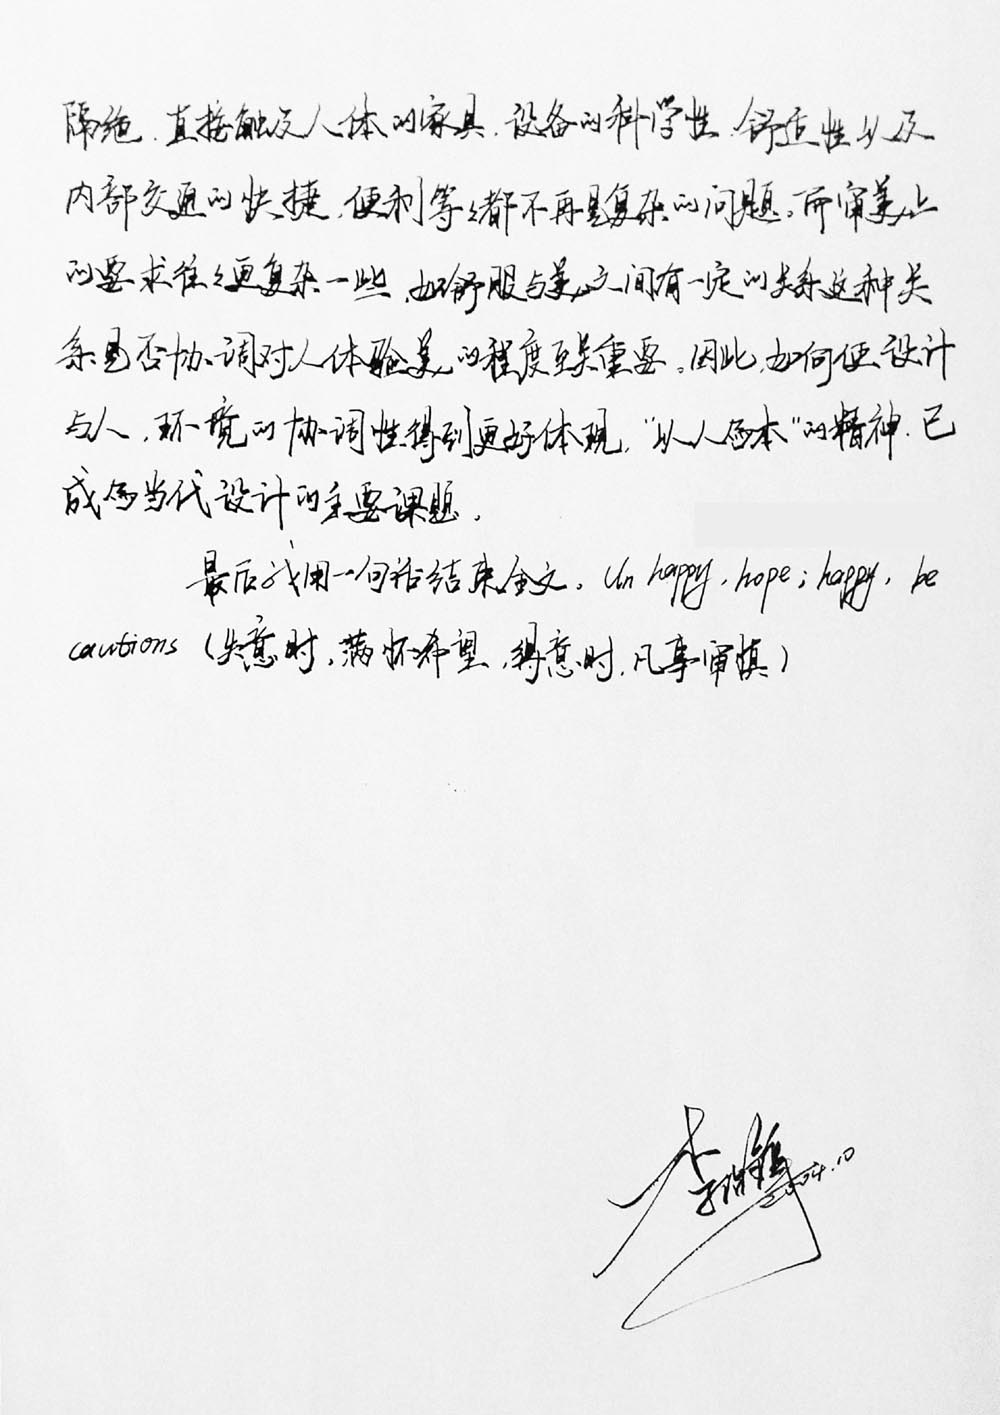 隔绝.直接触及人体的家具.设备的科学性.舒适性以及
内部交通的快捷.便利等々都不再是复杂的问题。而审美上
的要求往々更复杂一些.如舒服与美之间有一定的关系这种关
系是否协调对人体验美的程度至关重要。因此,如何使设计
与人.环境的协调性得到更好体现,"以人为本"的精神.已
成为当代设计的主要课题。
最后我用一句话结束全文。Unhappy,hope;happy,be
cautions(失意时,满怀希望,得意时,凡事审慎)
李
2004.10